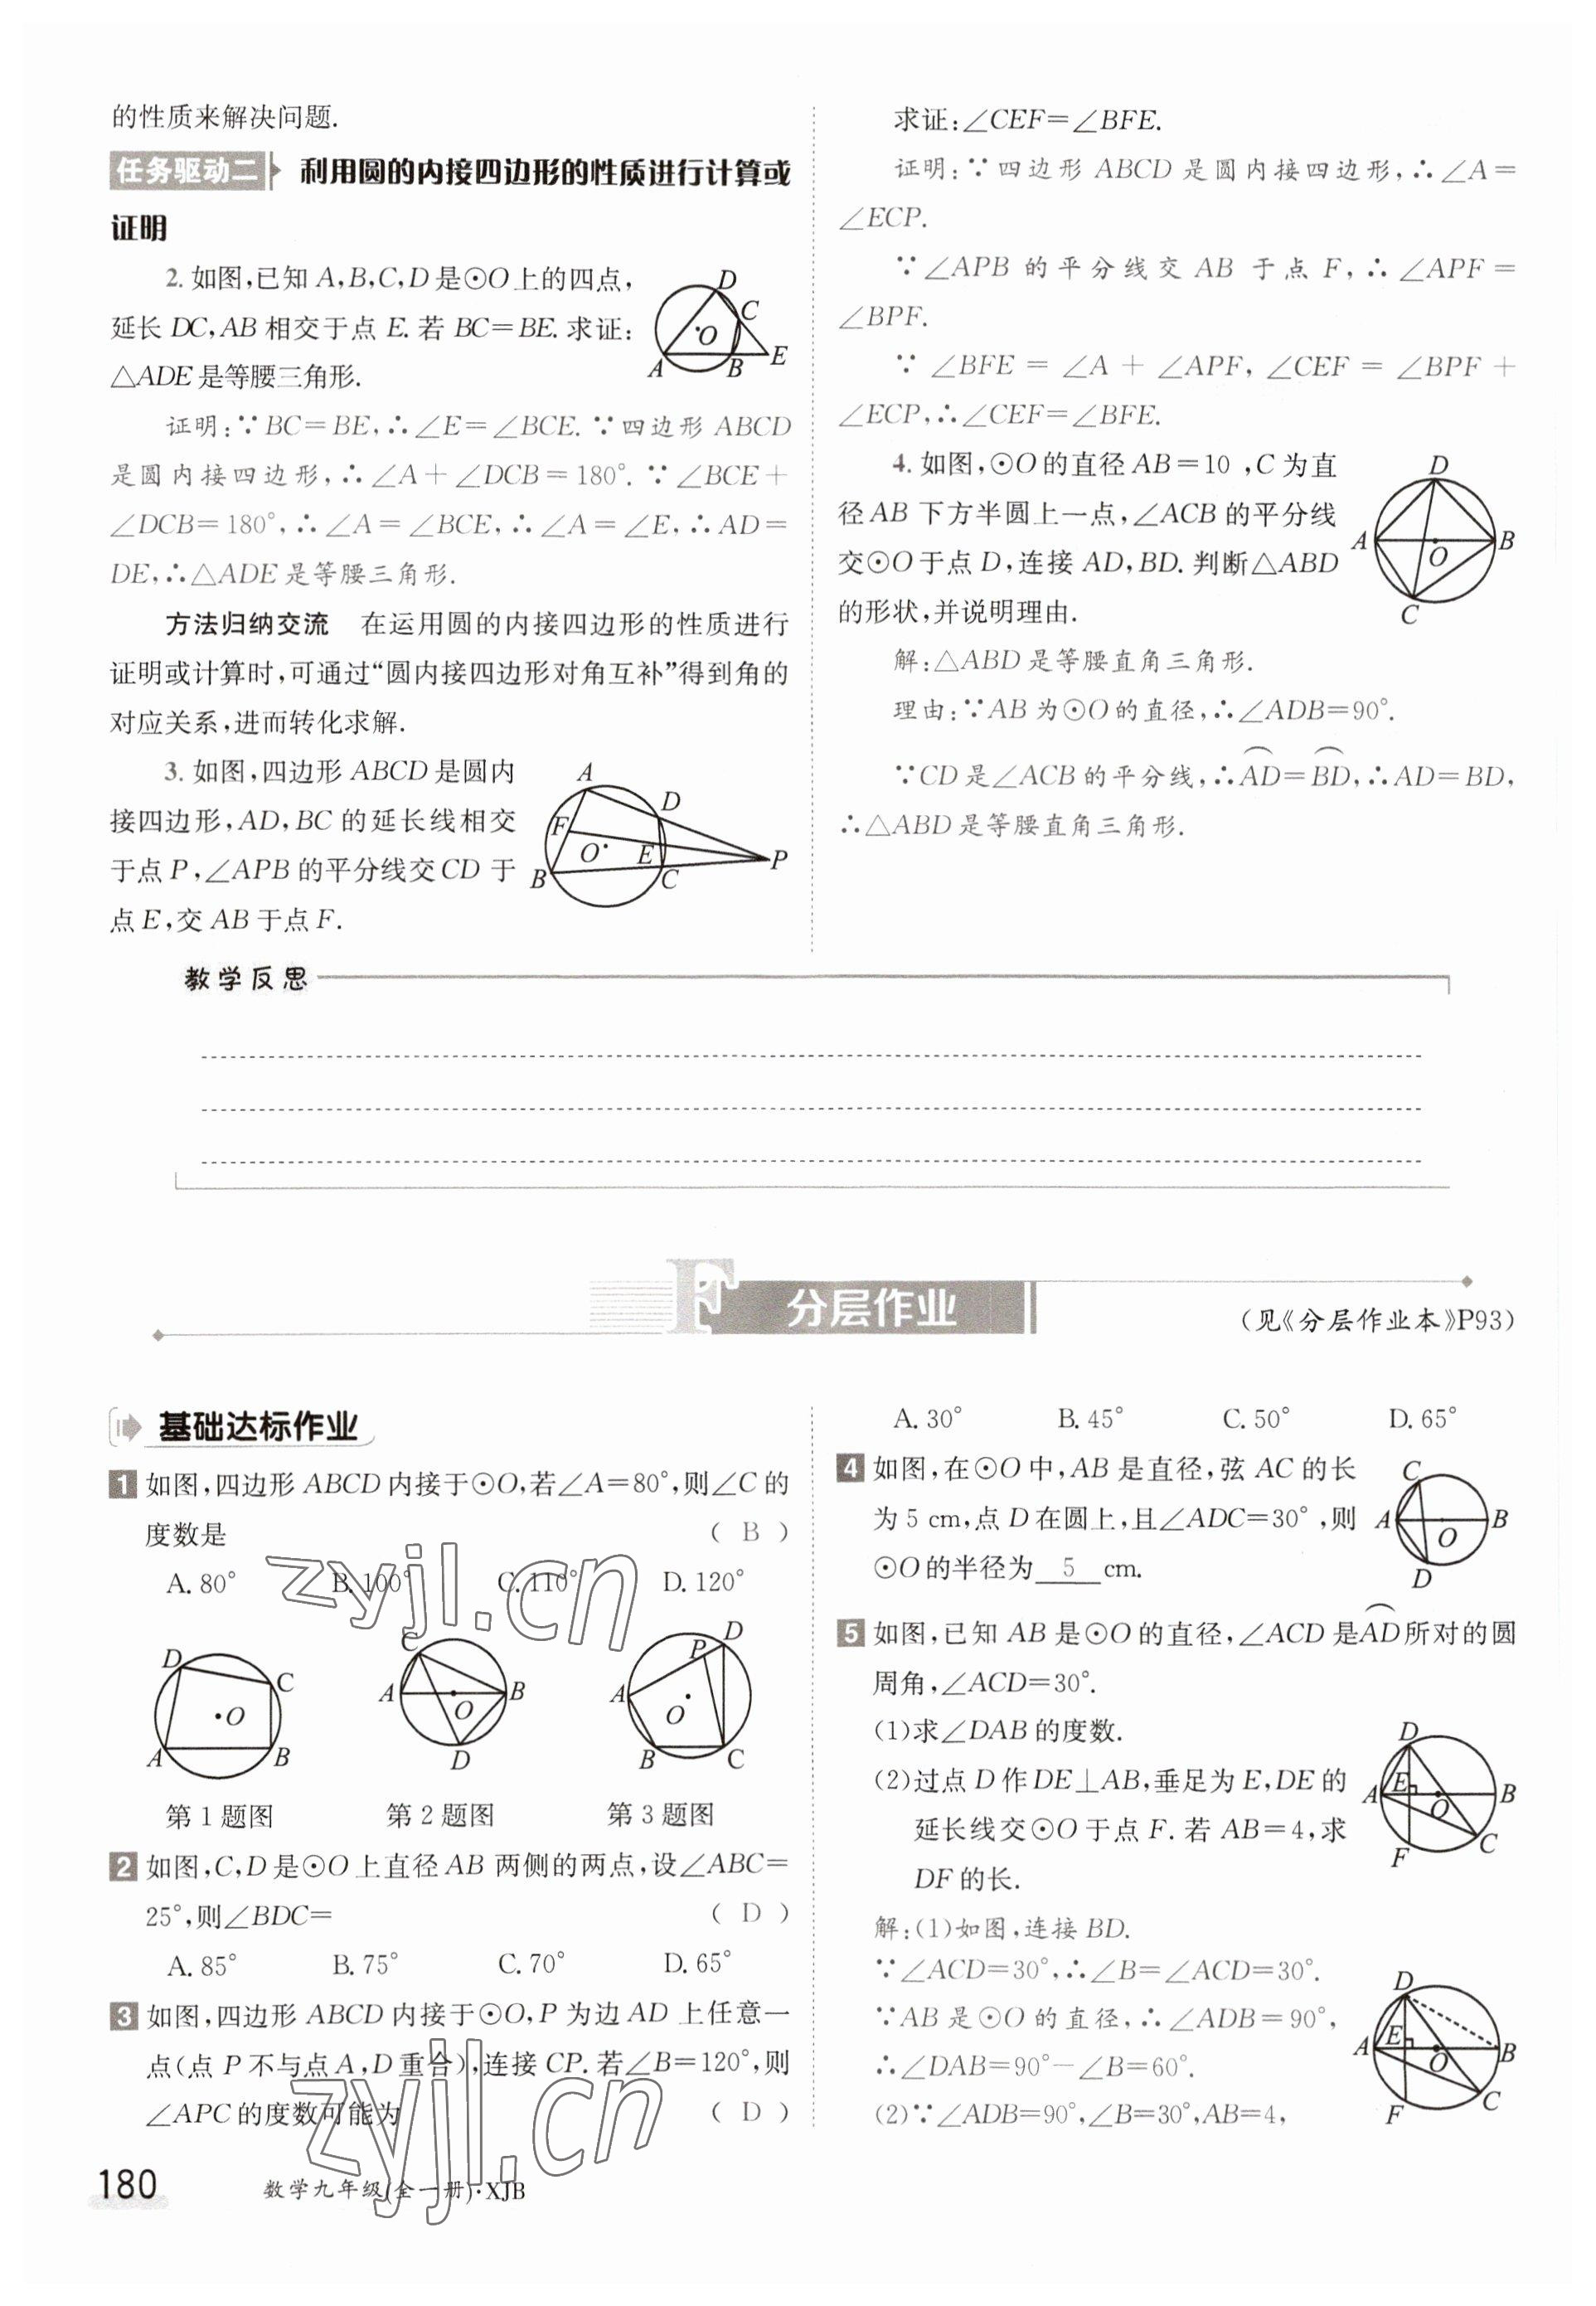 的性质来解决问题.
任务驱动二 利用圆的内接四边形的性质进行计算或
证明
2. 如图,已知 A,B,C,D 是⊙O 上的四点,
延长 DC,AB 相交于点 E. 若 BC=BE. 求证:
△ADE 是等腰三角形.
D
C
O
A
B
E
证明:∵BC=BE,∴∠E=∠BCE. ∵四边形 ABCD
是圆内接四边形,∴∠A+∠DCB=180°. ∵∠BCE+
∠DCB=180°,∴∠A=∠BCE,∴∠A=∠E,∴AD=
DE,∴△ADE 是等腰三角形.
方法归纳交流 在运用圆的内接四边形的性质进行
证明或计算时,可通过“圆内接四边形对角互补”得到角的
对应关系,进而转化求解.
3. 如图,四边形 ABCD 是圆内
接四边形,AD,BC 的延长线相交
于点 P,∠APB 的平分线交 CD 于
点 E,交 AB 于点 F.
A
D
F
O
E
P
B
C
求证:∠CEF=∠BFE.
证明:∵四边形 ABCD 是圆内接四边形,∴∠A=
∠ECP.
∵∠APB 的平分线交 AB 于点 F,∴∠APF=
∠BPF.
∵∠BFE=∠A+∠APF,∠CEF=∠BPF+
∠ECP,∴∠CEF=∠BFE.
4. 如图,⊙O 的直径 AB=10 ,C 为直
径 AB 下方半圆上一点,∠ACB 的平分线
交⊙O 于点 D,连接 AD,BD. 判断△ABD
的形状,并说明理由.
D
A
B
O
C
解:△ABD 是等腰直角三角形.
理由:∵AB 为⊙O 的直径,∴∠ADB=90°.
∵CD 是∠ACB 的平分线,∴⌒AD=⌒BD,∴AD=BD,
∴△ABD 是等腰直角三角形.
教学反思
F 分层作业
(见《分层作业本》P93)
基础达标作业
1 如图,四边形 ABCD 内接于⊙O,若∠A=80°,则∠C 的
度数是 ( B )
A. 80° B. 100° C. 110° D. 120°
D
C
O
A
B
第 1 题图
C
A
B
O
D
第 2 题图
D
P
A
O
B
C
第 3 题图
2 如图,C,D 是⊙O 上直径 AB 两侧的两点,设∠ABC=
25°,则∠BDC= ( D )
A. 85° B. 75° C. 70° D. 65°
3 如图,四边形 ABCD 内接于⊙O,P 为边 AD 上任意一
点(点 P 不与点 A,D 重合),连接 CP. 若∠B=120°,则
∠APC 的度数可能为 ( D )
A. 30° B. 45° C. 50° D. 65°
4 如图,在⊙O 中,AB 是直径,弦 AC 的长
为 5 cm,点 D 在圆上,且∠ADC=30° ,则
⊙O 的半径为 5 cm.
C
A
B
O
D
5 如图,已知 AB 是⊙O 的直径,∠ACD 是⌒AD所对的圆
周角,∠ACD=30°.
(1)求∠DAB 的度数.
(2)过点 D 作 DE⊥AB,垂足为 E,DE 的
延长线交⊙O 于点 F. 若 AB=4,求
DF 的长.
D
E
A
B
O
C
F
解:(1)如图,连接 BD.
∵∠ACD=30°,∴∠B=∠ACD=30°.
∵AB 是⊙O 的直径,∴∠ADB=90°,
∴∠DAB=90°-∠B=60°.
(2)∵∠ADB=90°,∠B=30°,AB=4,
D
E
A
B
O
C
F
zyjl.cn
zyjl.cn
180 数学九年级(全一册)·XJB